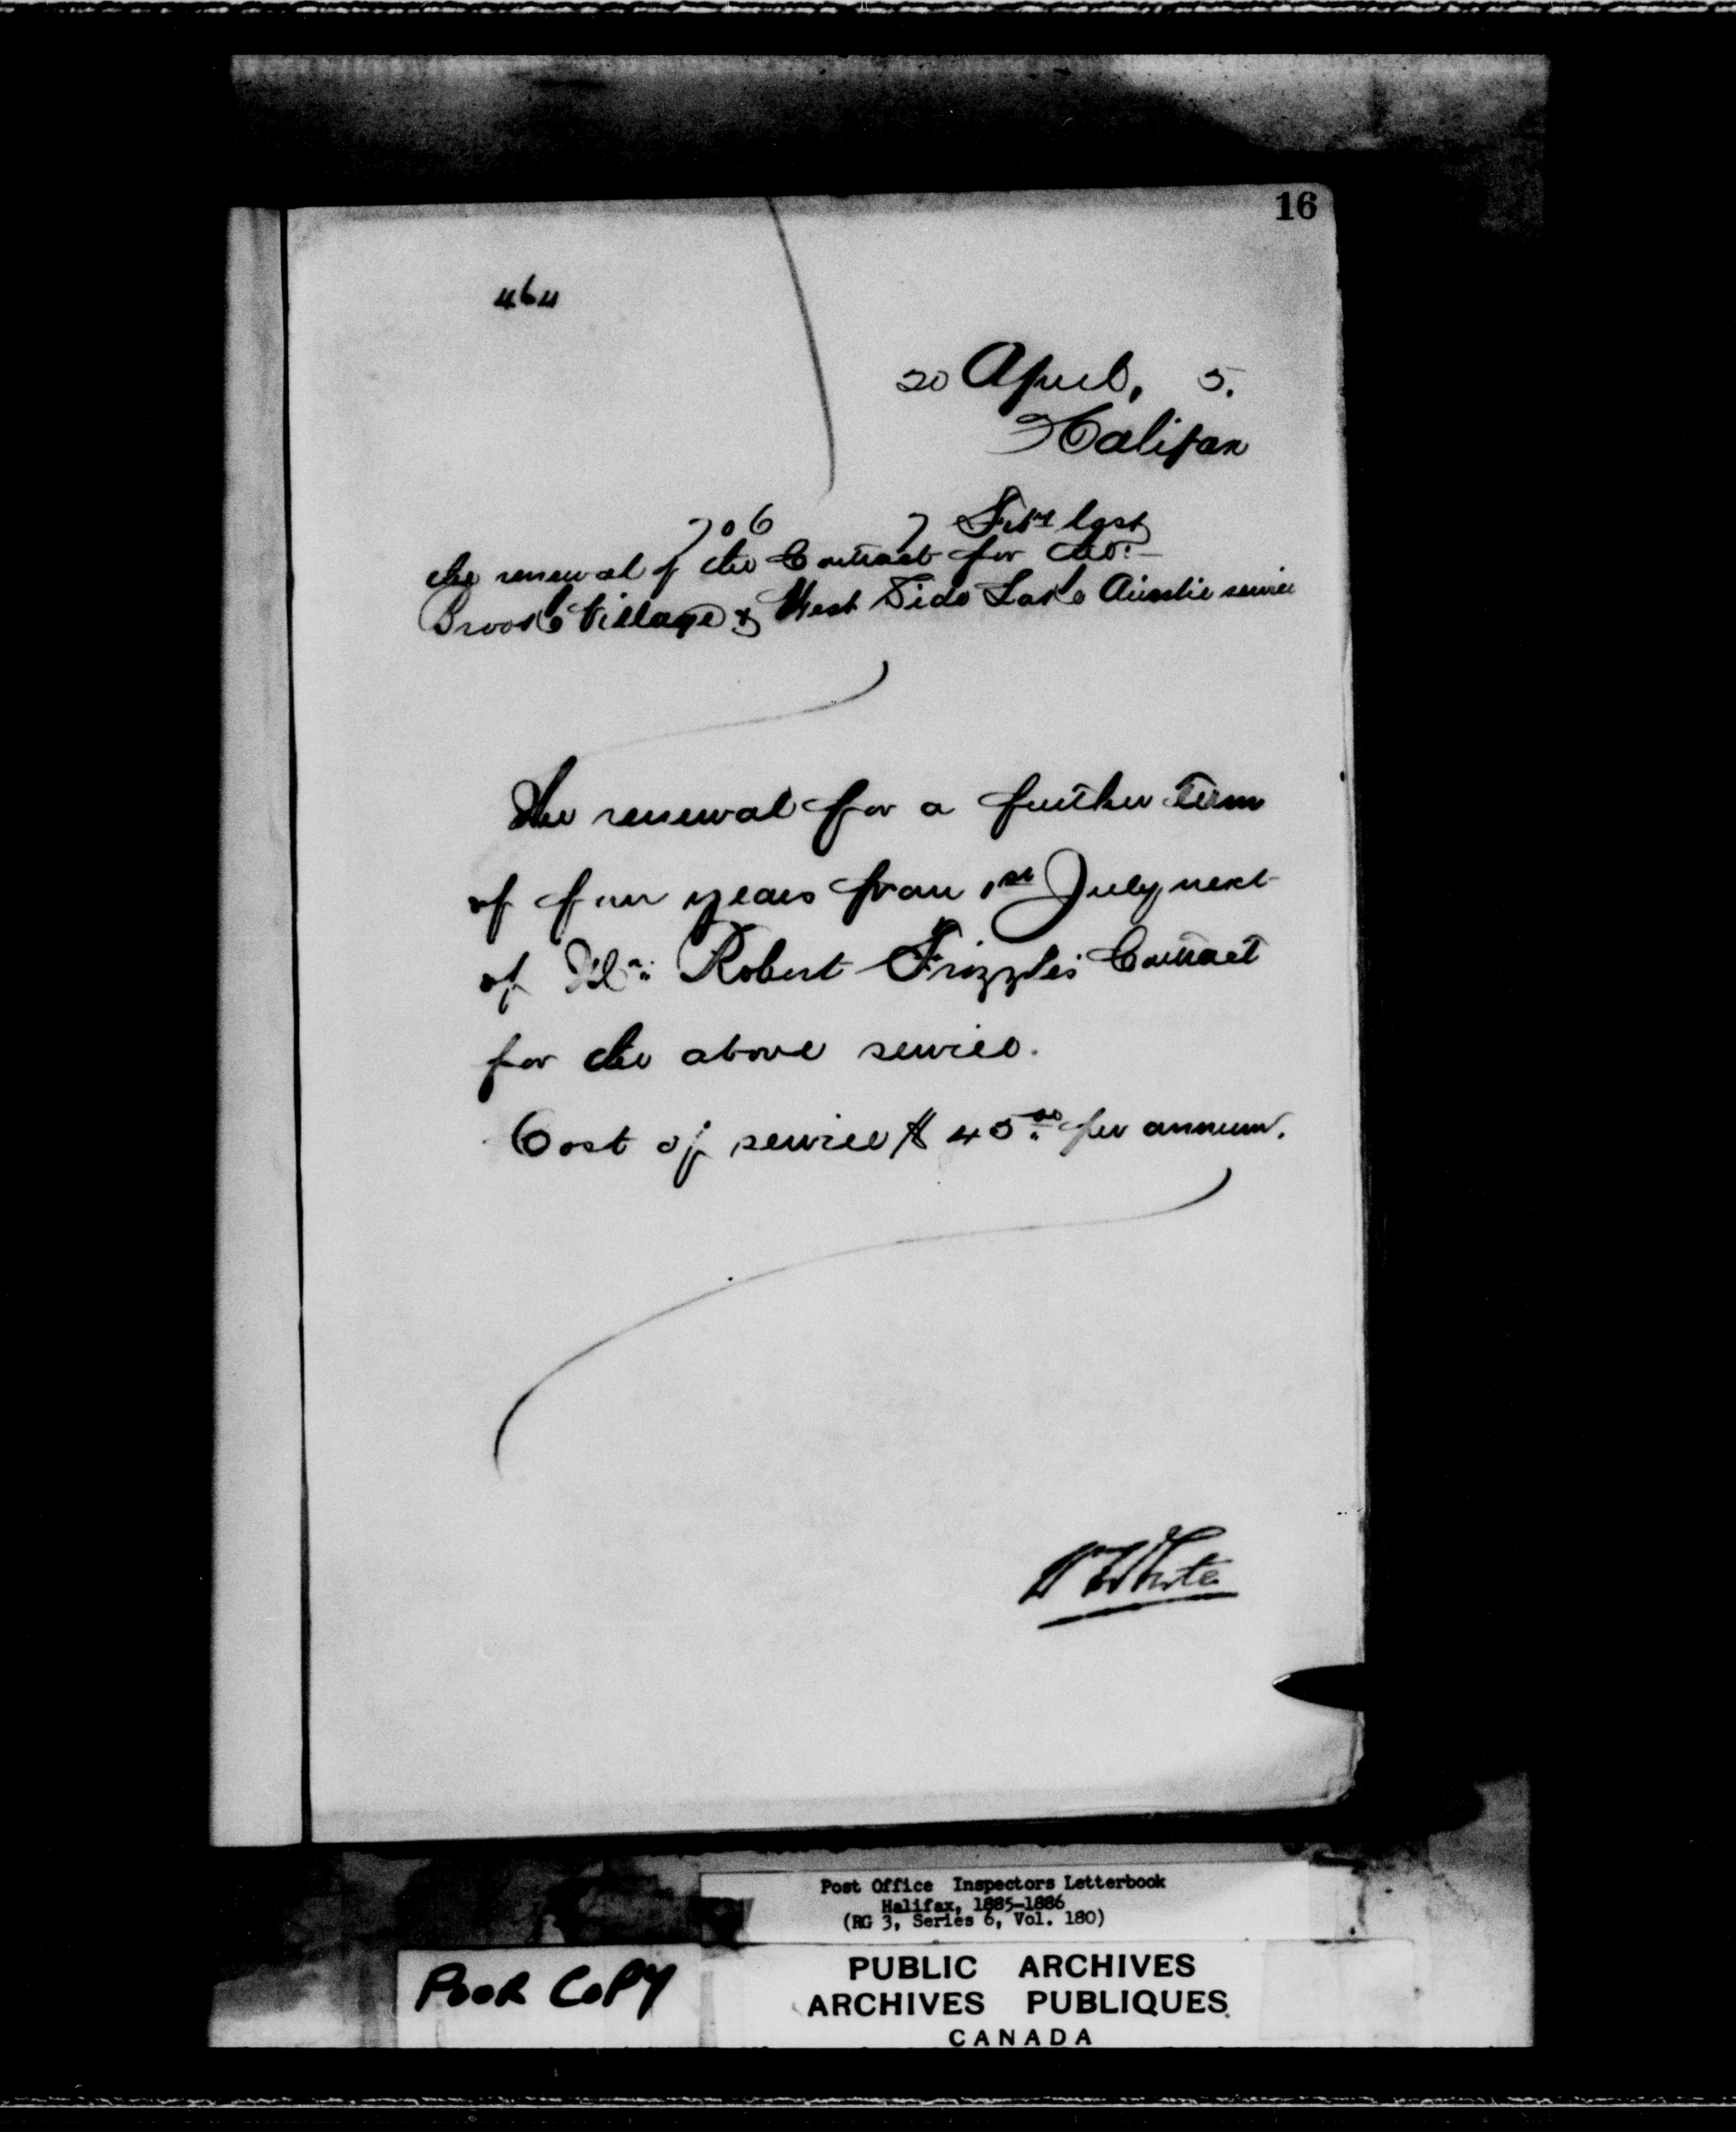 16
464
20 April, 5.
Halifax
706 7 Feby last
the renewal of the Contract for the
Brook Village & West Side Lake Ainslie service
The renewal for a further term
of four years from 1st July next
of Mr. Robert Frizzle's Contract
for the above service.
Cost of service $45.00 per annum.
White
Post Office Inspectors Letterbook
Halifax, 1885-1886
(RG 3, Series 6, Vol. 180)
POOR COPY
PUBLIC ARCHIVES
ARCHIVES PUBLIQUES
CANADA